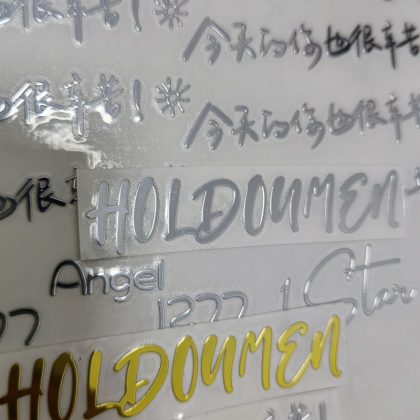 很辛苦！
今天的你也很辛苦
很辛苦！
今天的你也很辛苦
也很
HOLDOUMEN
Angel
1277 1 Star
HOLDOUMEN